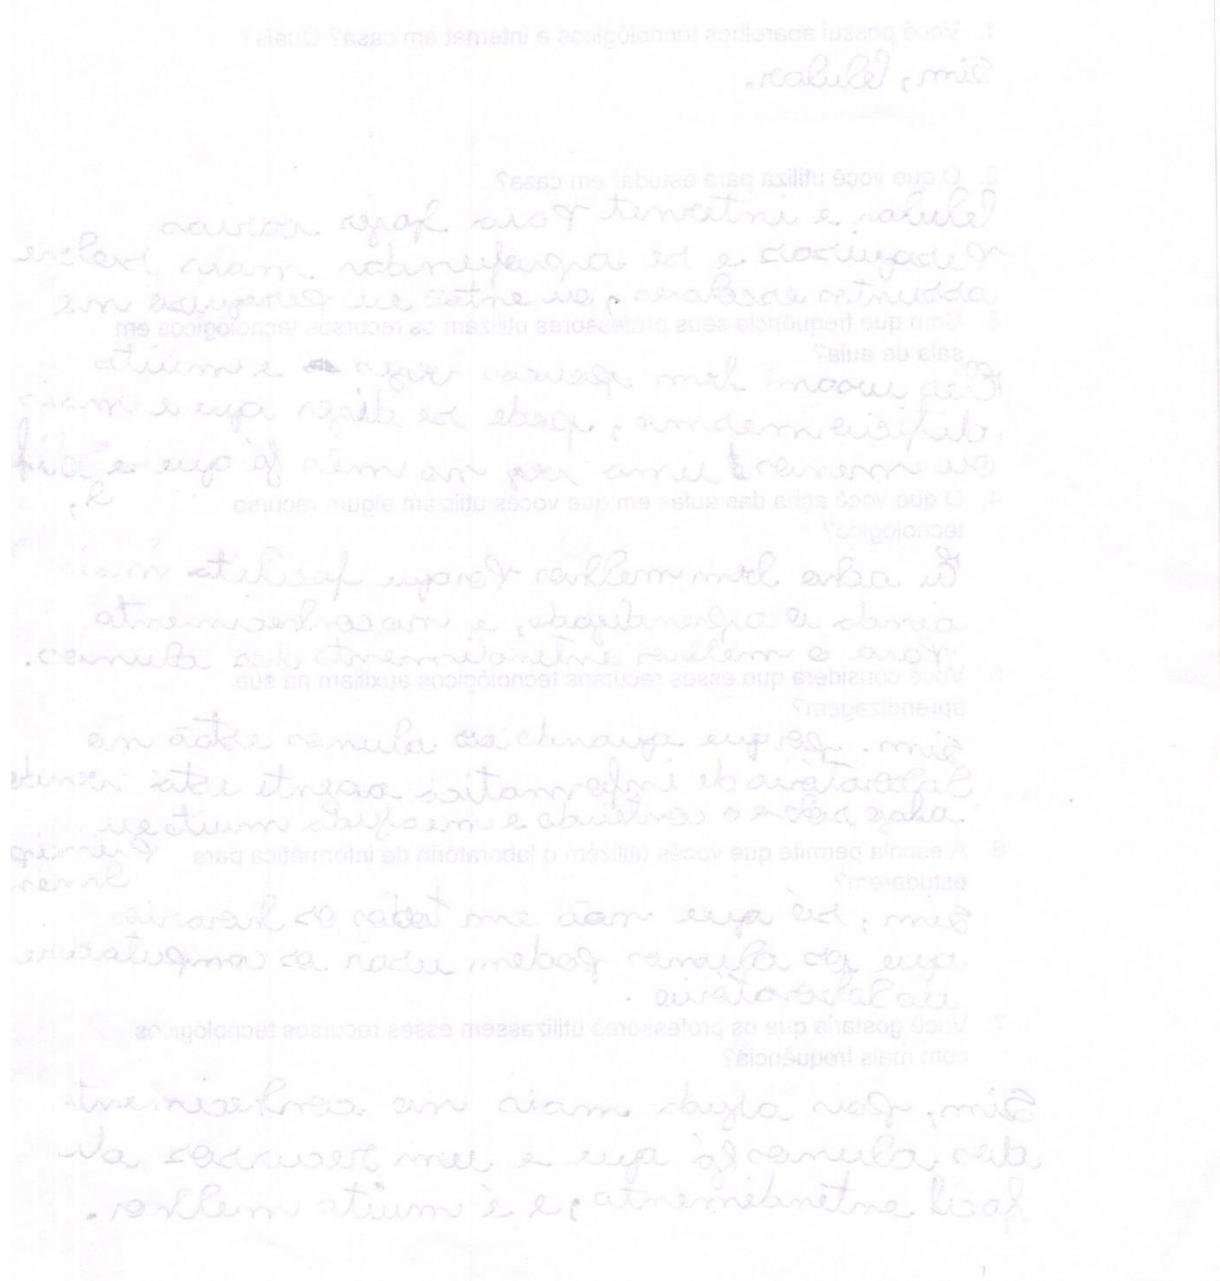 1. Você possui aparelhos tecnológicos e internet em casa? Quais?
Sim, Celular.
2. O que você utiliza para estudar em casa?
Celular, e intternet Para fazer varias
Pesquisas e se aprofundar mais sobre
assuntos escolares, ou então eu pesquiso me
3. Com que frequência seus professores utilizam os recursos tecnológicos em
sala de aula?
usam bom poucas vezes e muinto
dificio mesmo, pode se dizer que e mais
ou menos uma vez no mês já que e dif
4. O que você acha das aulas em que vocês utilizam algum recurso
tecnológico?
Eu acho bem melhor Porque facilita mais
ainda o aprendizado, e no conhecimento
Para o melhor entendimento dos alunos.
5. Você considera que esses recursos tecnológicos auxiliam na sua
aprendizagem?
Sim. porque quando os alunos estão no
Laboratório de informatica agente está
algo sobre o conteudo e me ajuda muito eu
6. A escola permite que vocês utilizem o laboratório de informática para
estudarem?
Sim, só que não em todos os horarios
que os alunos podem usar os computadore
do laboratorio.
7. Você gostaria que os professores utilizassem esses recursos tecnológicos
com mais frequência?
Sim, pois ajuda mais no conhecimento
dos alunos já que e um recursos de
facil entendimento, e é muito melhor.